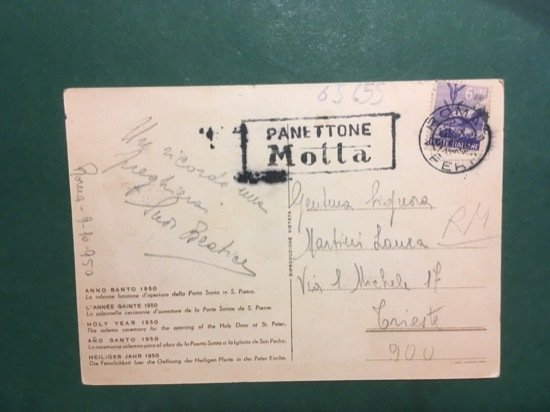 65655
PANETTONE
Motta
ROMA
FERR
POSTE ITALIANE
Un ricordo una
preghiera
Suor Beatrice
Roma - 9-10-950
Gentma Signora
Martini Laura
Via S Michele 17
Trieste
900
RM
RIPRODUZIONE VIETATA
ANNO SANTO 1950
La solenne funzione d'apertura della Porta Santa in S. Pietro.
L'ANNÉE SAINTE 1950
La solennelle cérimonie d'ouverture de la Porte Sainte de S. Pierre.
HOLY YEAR 1950
The solemn ceremony for the opening of the Holy Door at St. Peter.
AÑO SANTO 1950
La ceremonia solemne para el abrir de la Puerta Santa a la Iglesia de San Pedro.
HEILIGES JAHR 1950
Die Feierlichkeit fuer die Oeffnung der Heiligen Pforte in der Peter Kirche.